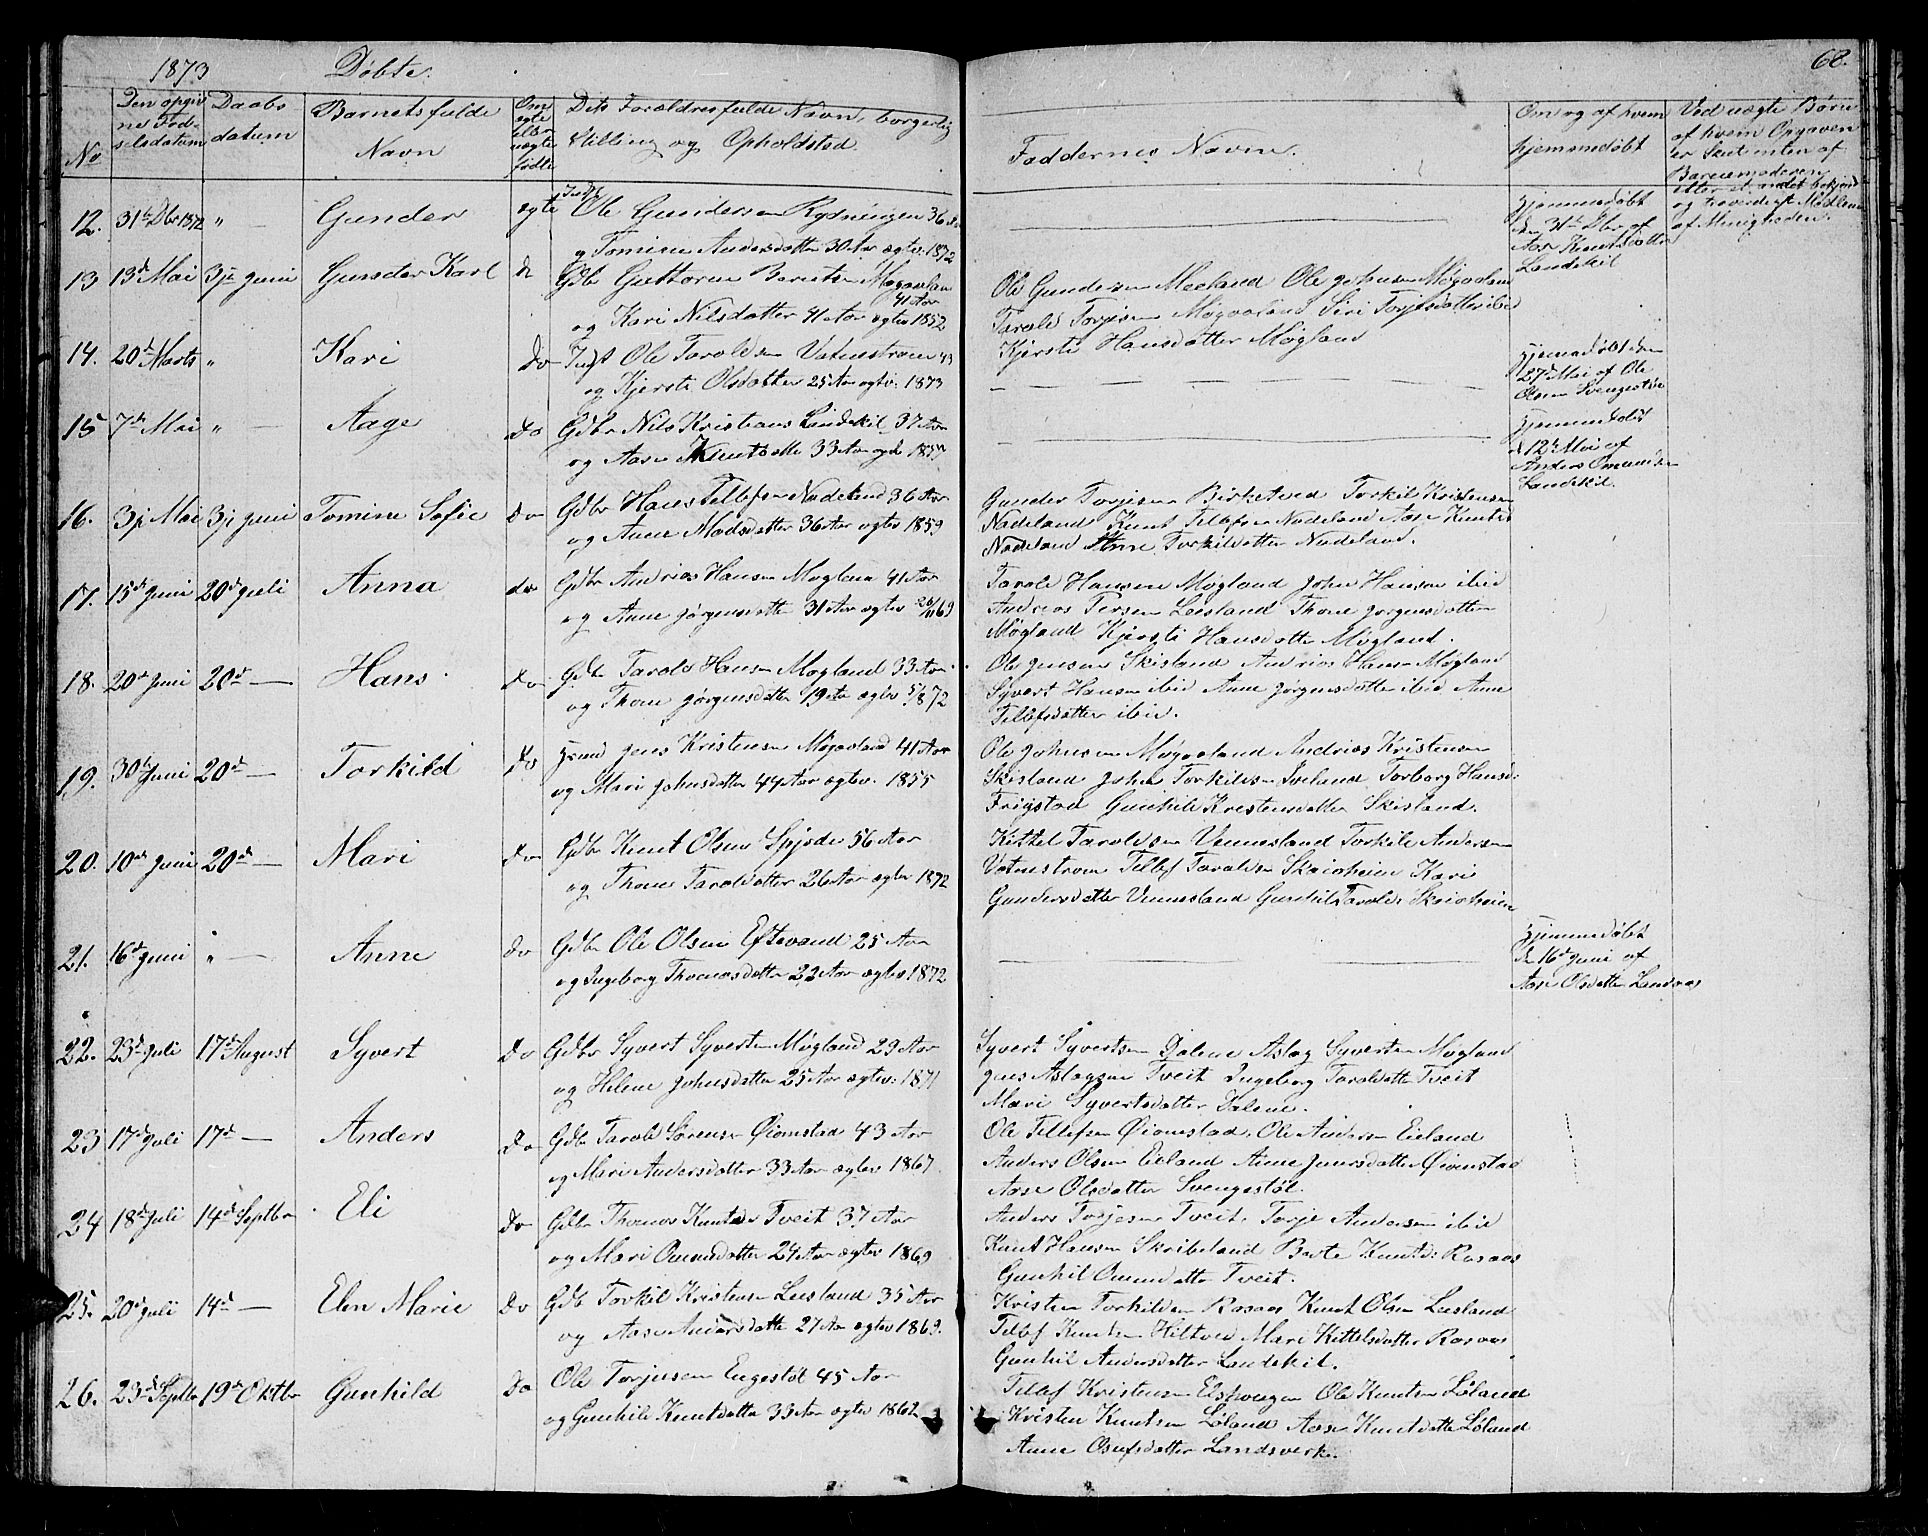 1873 Døbte. 68.
No
Den opgivne Fødselsdatum
Daabsdatum
Barnets fulde Navn
Om ægte eller uægte fødte
Dets Forældres fulde Navn, borgerlig
Stilling og Opholdsted
Faddernes Navne.
Om og af hvem
hjemmedøbt
Ved uægte Børn
af hvem Opgaven
er Skeet enten af
Barnemoderen
eller et andet bekjendt
og troværdigt Medlem
af Menigheden.
12. 31te Dbr 1872 " — Gunder ægte Indst Ole Gundersen Rysningen 36
og Tomine Andersdatter 30 Aar ægtev. 1872
Hjemmedøbt
den 31te Dbr af
Aase Knutsdatter
Landekil
13 13d Mai 3je Juni Gunder Karl do Gdbr Guttorm Berntsen Møgaaland
41 Aar
og Kari Nilsdatter 41 Aar ægtev 1852
Ole Gundersen Meeland Ole Johnsen Møgaaland
Tarald Torjesen Møgaaland Siri Torjesdatter ibid
Kjersti Hansdatter Møgland
14. 20d Marts " Kari do Indst Ole Taraldsen Vatnestrøm 43
og Kjersti Olsdatter 25 Aar ægtev. 1873
Hjemmedøbt den
27d Mai af Ole
Olsen Svengestøl
15 7de Mai " — Aage do Gdbr Nils Kristians Landekil 37 Aar
og Aase Knutsdatte 33 Aar
Hjemmedøbt
d 12te Mai af
Anders Omundsen
Landekil.
16. 3je Mai 3je Juni Tomine Sofie do Gdbr Hans Tellefsen Nodeland 36 Aar
og Anne Madsdatter 36 Aar ægtev 1859
Gunder Torjesen Birketved Torkil Kristensen
Nodeland Knut Tellefsen Nodeland Aase Knutsd
Nodeland Anne Torkildatter Nodeland.
17. 15de Juni 20d Juli Anna do Gdbr Andrias Hansen Møgland 41 Aar
og Anne Jørgensdatte 31 Aar ægtev 69
Tarald Hansen Møgland John Hansen ibid
Andreas Tersen Leesland Thone Jørgensdatter
Møgland Kjersti Hansdatte Møgland.
18. 20de Juni 20d — Hans do Gdbr Tarald Hansen Møgland 33 Aar
og Thone Jørgensdatte 19 Aar ægtev 5/8 72
Ole Jensen Skisland Andrias Hansen Møgland
Syvert Hansen ibid Anne Jørgensdatte ibid Anne
Tellefsdatter ibid.
19. 30te Juni 20d — Torkild do Jens Kristensen Møgaaland 41 Aar
og Mari Johnsdatter 44 Aar ægtev. 1855
Ole Johnsen Møgaaland Andrias Kristensen
Skisland John Torkildsen Iveland Torborg Hansd:
Frigstad Gunhild Kristensdatter Skisland.
20. 10de Juni 20d — Mari do Gdbr Knut Olsen Spjode 56 Aar
og Thone Taraldatter 26 Aar ægtev 1872
Kittel Taraldsen Vennesland Torkild Andersen
Vatnestrøm Tellef Taraldsen Skaiaheien Kari
Gundersdatter Vennesland Gunhil Tarald: Skaiaheien
21. 16de Juni " — Anne do Gdbr Ole Olsen Eftevand 25 Aar
og Ingeborg Thomasdatte 22 Aar ægtev 1872
Hjemmedøbt
den 16de Juni af
Aase Olsdatter Landaas
22. 23d Juli 17d August Syvert do Gdbr Syvert Syvertsen Møgland 29 Aar
og Helene Johnsdatter 25 Aar ægtev: 1871
Syvert Syvertsen Dalene Aslag Syvertsen Møgland
Jens Aslagsen Tveit Ingeborg Taraldatte Tveit
Mari Syvertsdatter Dalene.
23 17d Juli 17d — Anders do Gdbr Tarald Sørensen Øiomstad 43 Aar
og Mari Andersdatter 33 Aar ægtev 1867.
Ole Tellefsen Øiomstad, Ole Andersen Eieland
Anders Olsen Eieland Anne Jensdatter Øiomstad
Aase Olsdatter Svengestøl.
24 18d Juli 14d Septbr Eli do Gdbr Thomas Knutsen Tveit 37 Aar
og Mari Omundsdatter 24 Aar ægtev 1869
Anders Torjesen Tveit, Torje Andersen ibid
Knut Hansen Skribeland Berte Knutsd: Rosaas
Gunhil Omundsdatter Tveit.
25. 20d Juli 14d — Elen Marie do Gdb Torkil Kristensen Leesland 35 Aar
og Aase Andersdatte 27 Aar ægtev 1869.
Kristen Torkildsen Rosaas Knut Olsen Leesland
Tellef Knutsen Hiltved Mari Kittelsdatter Rosaas
Gunhil Andersdatter Landekil.
26. 23d Septbr 19d Oktbr Gunhild do Ole Torjusen Engestøl 45 Aar
og Gunhild Knutsdatte 33 Aar ægtev 1862
Tellef Kristensen Elshaugen Ole Knutsen Løland
Kristen Knutsen Løland Aase Knutsdatte Løland
Anne Osufsdatter Landsverk.